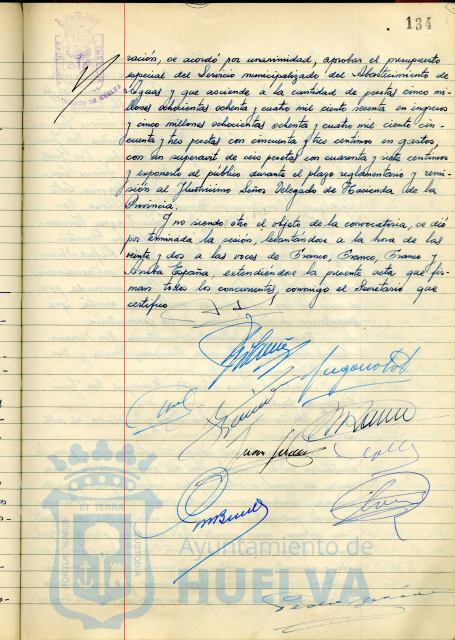 134
ración, se acordó por unanimidad, aprobar el presupuesto
especial del Servicio municipalizado del Abastecimiento de
Aguas y que asciende a la cantidad de pesetas cinco mi-
llones ochocientas ochenta y cuatro mil ciento sesenta en ingresos
y cinco millones ochocientas ochenta y cuatro mil ciento cin-
cuenta y tres pesetas con cincuenta y tres centimos en gastos,
con un superavit de seis pesetas con cuarenta y siete centimos
y exponerlo al publico durante el plazo reglamentario y remi-
sión al Ilustrisimo Señor Delegado de Hacienda de la
Provincia.
Y no siendo otro el objeto de la convocatoria, se dió
por terminada la sesión, levantándose a la hora de las
veinte y dos a las voces de Franco, Franco, Franco y
Arriba España, extendiéndose la presente acta que fir-
man todos los concurrentes, conmigo el Secretario que
certifico
Juan
ET TERRA
PORTUS MARIS
CUSTODIA
Ayuntamiento de
HUELVA